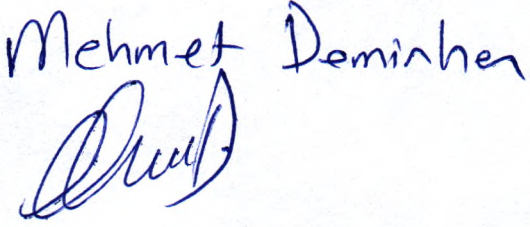 Mehmet Demirhan